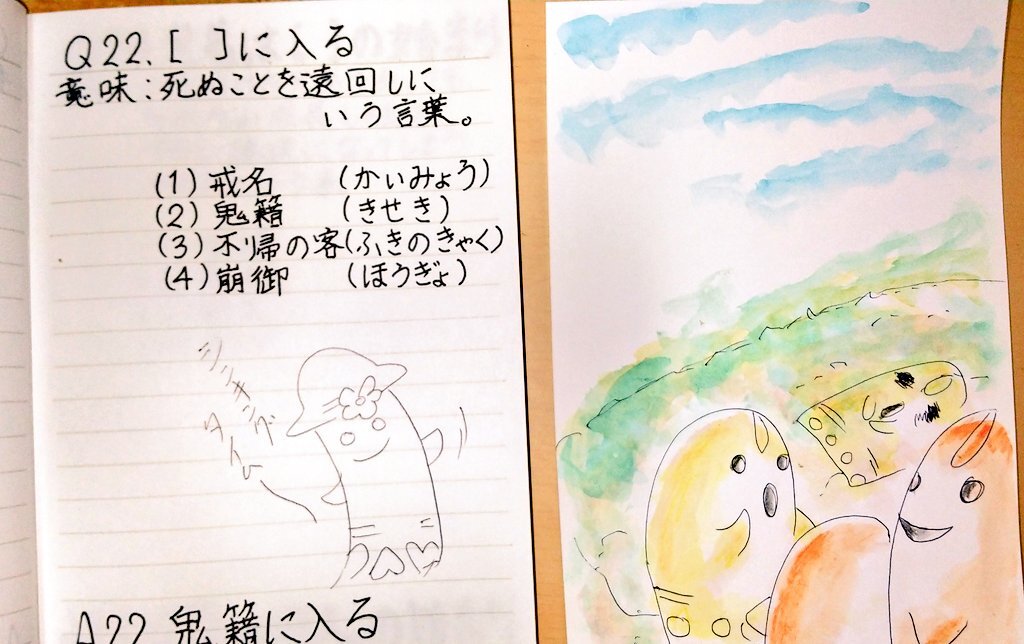 Q22.[ ]に入る
意味:死ぬことを遠回しに
いう言葉。
(1)戒名 (かいみょう)
(2)鬼籍 (きせき)
(3)不帰の客(ふきのきゃく)
(4)崩御 (ほうぎょ)
シンキング
タイム
A22 鬼籍に入る